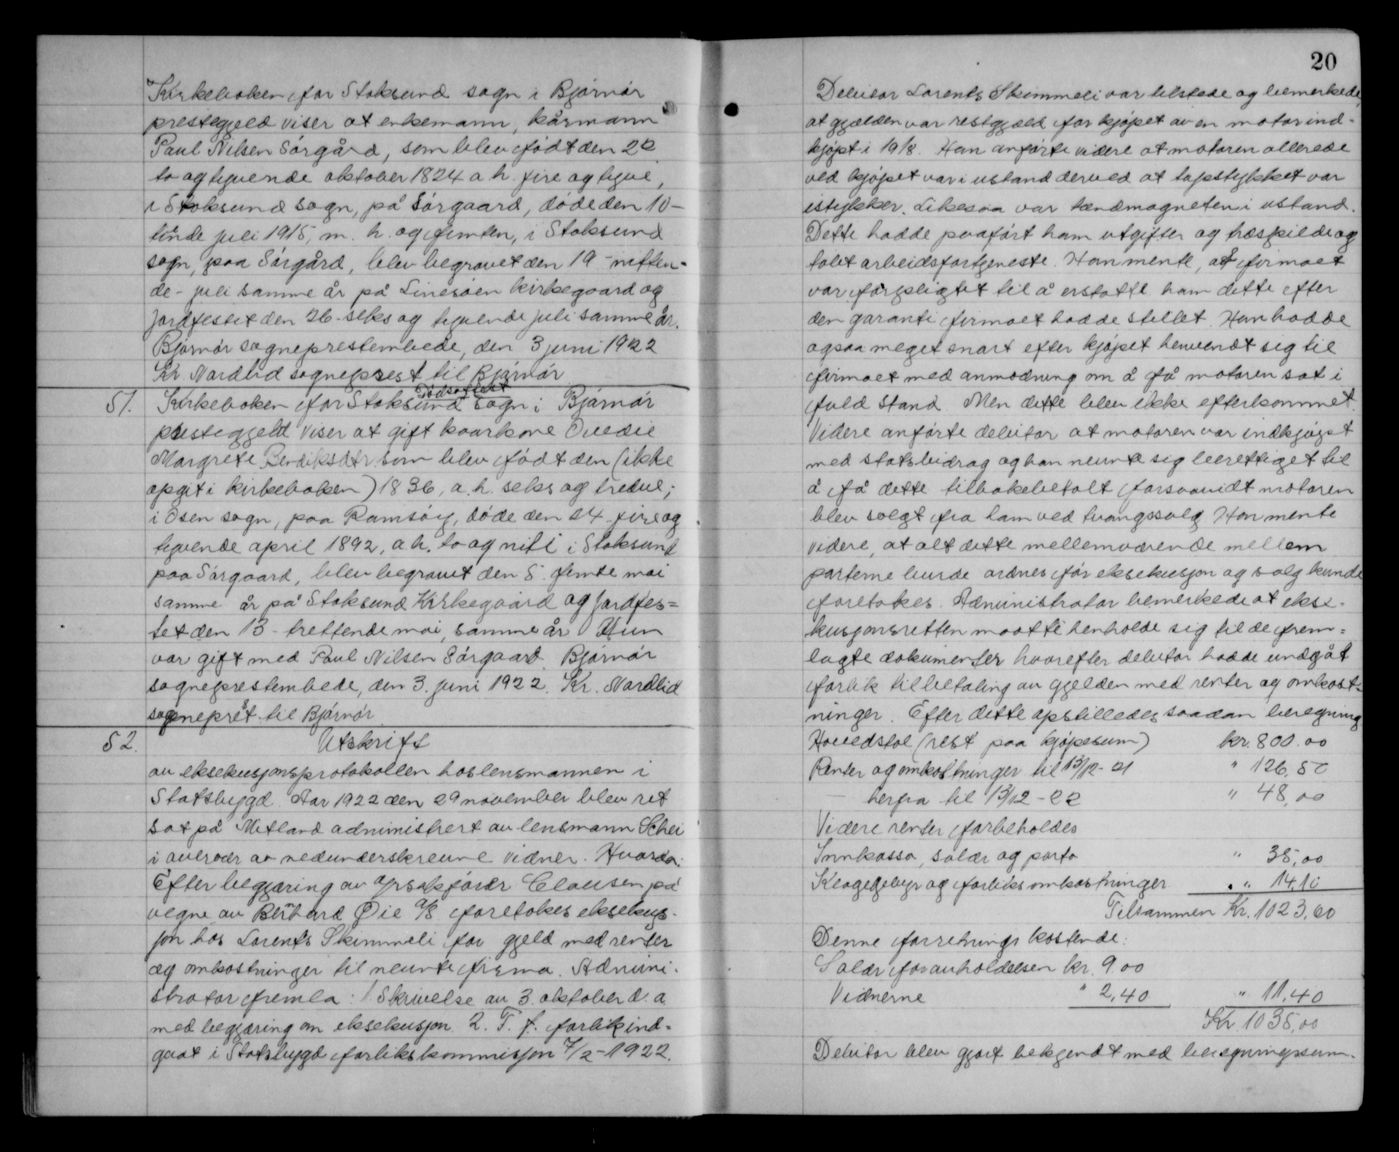 Kirkeboken for Stoksund sogn i Bjørnør
prestegjeld viser at enkemann, kårmann
Paul Nilsen Sørgård, som blev født den 22
to og tyvende oktober 1824 a. h. fire og tyve,
i Stoksund sogn, på Sørgaard, døde den 10-
tiende juli 1915, m. h. og femten, i Stoksund
sogn, paa Sørgård, blev begravet den 19 - nitten-
de - juli samme år på Linesøen kirkegaard og
jordfestet den 26 - seks og tyvende juli samme år.
Bjørnør sogneprestembede, den 3 juni 1922
Kr. Nordlid sogneprest til Bjørnør
Dødsattest
51. Kirkeboken for Stoksund sogn i Bjørnør
prestegjeld viser at gift kaarkone
Margrete Bendiksdtr. som blev født den (ikke
opgit i kirkeboken) 1836, a. h. seks og tredve,
i Osen sogn, paa Ramsøy, døde den 24 - fire og
tyvende april 1892, a. h. to og nitti i Stoksund
paa Sørgaard, blev begravet den 5. femte mai
samme år på Stoksund Kirkegaard og jordfes=
tet den 13 - trettende mai, samme år. Hun
var gift med Paul Nilsen Sørgaard. Bjørnør
sogneprestembede, den 3. juni 1922. Kr. Nordlid
sogneprest til Bjørnør.
52. Utskrift
av eksekusjonsprotokollen hos lensmannen i
Statsbygd. Aar 1922 den 29 november blev ret
sat på Mitland administrert av lensmann Schei
i overvær av nedunderskrevne vidner. Hvorda:
Efter begjæring av oprsakfører Clausen på
vegne av Bernhard Øie A/S foretokes eksekus-
jon hos Lorents Skimmeli for gjeld med renter
og omkostninger til nevnte firma. Admini-
strator fremla: 1 Skrivelse av 3. oktober d. a.
med begjæring om eksekusjon 2. T. f. forlik ind-
gaat i Statsbygd forlikskommisjon 7/2 - 1922.
20
Debitor Lorents Skimmeli var tilstede og bemerkede,
at gjælden var restgjæld for kjøpet av en motor ind-
kjøpt i 1918. Han anførte videre at motoren allerede
ved kjøpet var i ustand derved at topstykket var
istykker. Likesaa var tændmagneten i ustand.
Dette hadde paaført ham utgifter og træspilde og
tabt arbeidsfortjeneste. Han mente, at firmaet
var forpligtet til å erstatte ham dette efter
den garanti firmaet hadde stillet. Han hadde
ogsaa meget snart efter kjøpet henvendt sig til
firmaet med anmodning om å få motoren sat i
fuld stand. Men dette blev ikke efterkommet.
Videre anførte debitor at motoren var indkjøpt
med statsbidrag og han nevnte sig berettiget til
å få dette tilbakebetalt forsaavidt motoren
blev solgt fra ham ved tvangssalg. Han mente
videre, at alt dette mellemværende mellem
parterne burde ordnes før eksekusjon og salg kunde
foretokes. Administrator bemerkede at ekse-
kusjonsretten maatte henholde sig til de frem=
lagte dokumenter hvorefter debitor hadde indgåt
forlik til betaling av gjelden med renter og omkost-
ninger. Efter dette opstilledes saadan beregning
Hovedstol (rest paa kjøpesum) kr. 800.00
Renter og omkostninger til 13/12 - 21 " 126,50
herfra til 13/12 - 22 " 48,00
Videre renter forbeholdes
Innkasso, salær og porto " 35,00
Klagegebyr og forliksomkostninger " 14.10
Tilsammen Kr. 1023,60
Denne forretnings kostende:
Salær for avholdelsen kr. 9.00
Vidnerne " 2,40 " 11,40
Kr. 1035,00
Debitor blev gjort bekjendt med beregningssum.